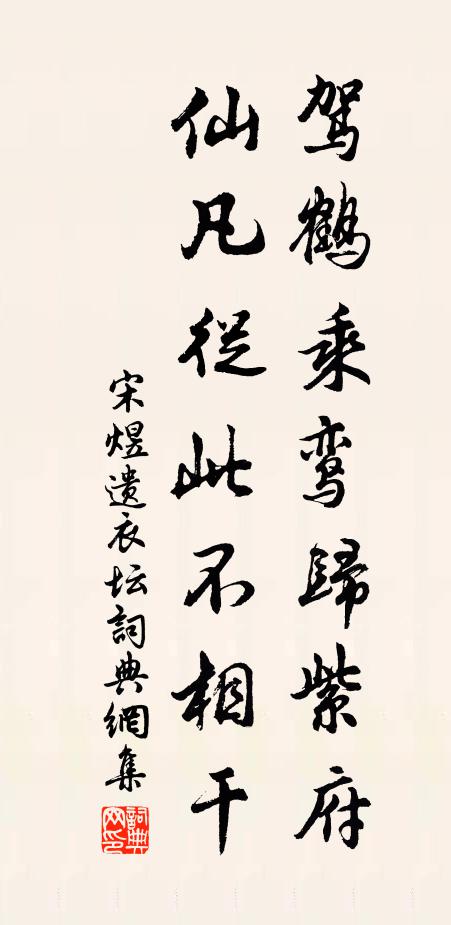 驾鹤乘鸾歸紫府
仙凡從此不相干
宋煜遺衣坛詞典網集
詞典网印